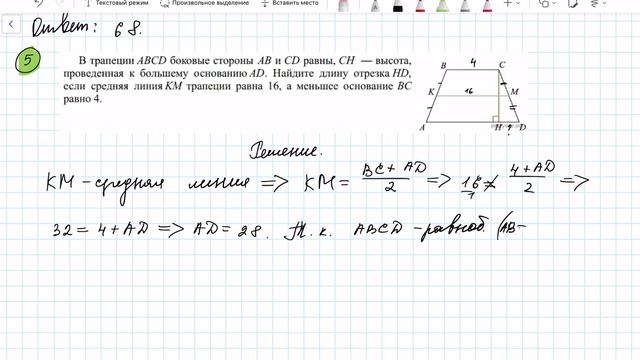 Текстовый режим Произвольное выделение Вставить место
Ответ: 68.
5
В трапеции ABCD боковые стороны AB и CD равны, CH — высота,
проведенная к большему основанию AD. Найдите длину отрезка HD,
если средняя линия KM трапеции равна 16, а меньшее основание BC
равно 4.
B 4 C
K 16 M
A H ? D
Решение.
KM - средняя линия => KM = (BC + AD)/2 => 16/1 = (4 + AD)/2 =>
32 = 4 + AD => AD = 28. Т. к. ABCD - равноб. (AB =